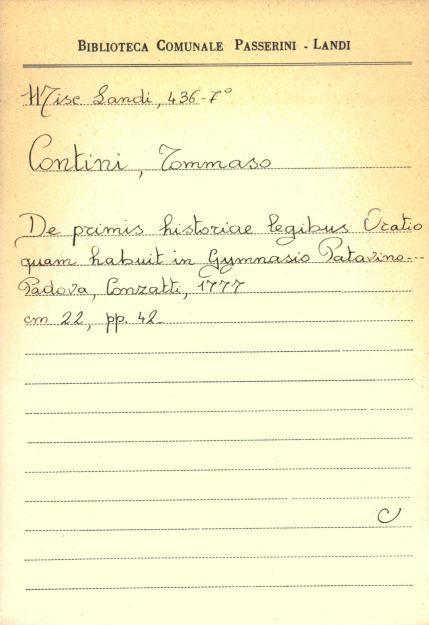 BIBLIOTECA COMUNALE PASSERINI - LANDI
Misc Landi, 436-7°
Contini, Tommaso
De primis historiae legibus Oratio
quam habuit in Gymnasio Patavino...
Padova, Conzatti, 1777
cm 22, pp. 42
C